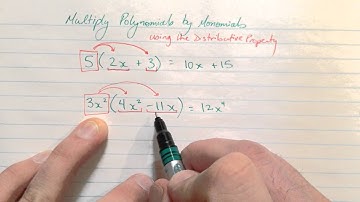 Multiply Polynomials by Monomials
using the Distributive Property
5(2x + 3) = 10x + 15
3x²(4x² - 11x) = 12x⁴